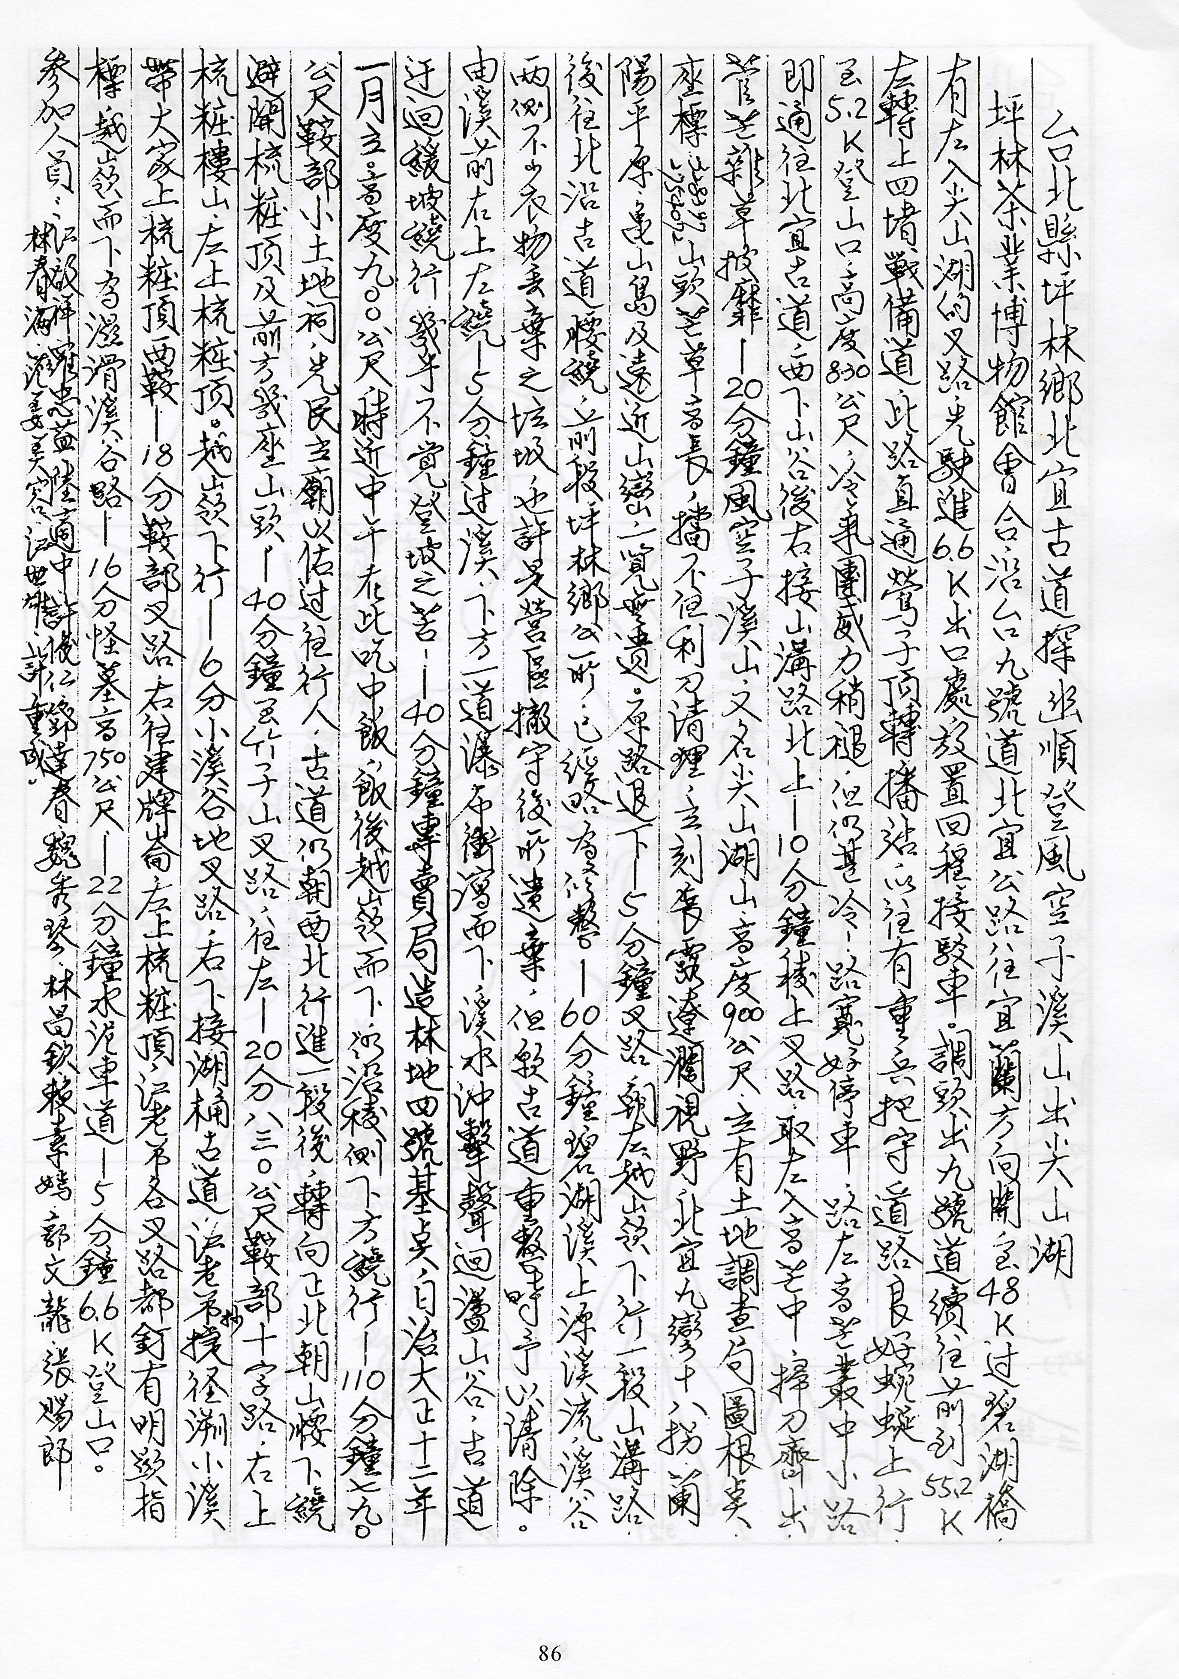 台北縣坪林鄉北宜古道探幽順登風空子溪山出尖山湖
坪林茶業博物館會合沿台九號道北宜公路往宜蘭方向開至48K过碧湖橋.
有左入尖山湖的叉路先駛進6.6K出口處放置回程接駁車。調頭出九號道續往前到55.2K
左轉上四堵戰備道此路直通鶯子頂轉播站以往有重兵把守道路良好蜿蜒上行.
至5.2K登山口高度830公尺冷氣團威力稍褪但仍甚冷路寬好停車路左高芒叢中小路
即通往北宜古道西下山谷後右接山溝路北上—10分鐘稜上叉路取左入高芒中掃刀齊出.
菅芒雜草披靡—20分鐘風空子溪山又名尖山湖山高度900公尺立有土地調查局圖根点.
座標山頭芒草高長擋不住利刀清理立刻展露遼濶視野北宜九彎十八拐蘭
陽平原龜山島及遠近山巒一覽無遺。原路退下—5分鐘叉路朝左越山嶺下行一段山溝路
後往北沿古道腰繞前段坪林鄉公所已經略为修整—60分鐘碧湖溪上源溪流溪谷
兩側不少衣物丟棄之垃圾也許是營區撤守後所遺棄但願古道重整時予以清除。
由溪前右上左繞—5分鐘过溪下方一道瀑布衝瀉而下溪水沖擊聲迴盪山谷古道
迂迴緩坡繞行幾乎不覺登坡之苦—40分鐘專賣局造林地四號基点自治大正十二年
一月立。高度九〇〇公尺時近中午在此吃中飯飯後越嶺而下仍沿稜側下方繞行—110分鐘七九〇
公尺鞍部小土地祠先民立廟以佑过往行人古道仍朝西北行進一段後轉向正北朝山腰下繞
避開梳粧頂及前方幾座山頭—40分鐘至竹子山叉路往左—20分八三〇公尺鞍部十字路右上
梳粧樓山左上梳粧頂。越嶺下行—6分小溪谷地叉路右下接湖桶古道江老弟抄捷径溯小溪
帶大家上梳粧頂西鞍—18分鞍部叉路右往建牌崙左上梳粧頂江老弟各叉路都釘有明顯指
標越嶺而下为濕滑溪谷路—16分怪墓高750公尺—22分鐘水泥車道—5分鐘6.6K登山口。
參加人員:江 羅忠益 陸適中 許俊仁 鄧達春 魏秀琴 林昌欽 賴素 郭文龍 張賜郎
林春 姜美容 江世雄 許重成。
86